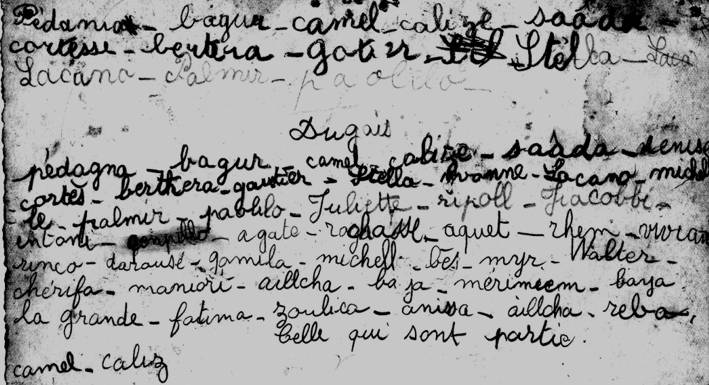 Pédania - bagur - camel - calize - saada -
cortesse - bertera - gotier - Stella - Laca
Lacano - Palmir - paolilo -
Dugais
pédagna - bagur - camel - calize - saada - denise
cortès - berthera - gautier - Stella - Yvonne - Lacano michel
le - palmir - pablilo - Juliette - ripoll - Jiacobbi -
intoni - agate - raghasse - aquet - rhem - vivian
rinco - darause - gamila - michell - bes - myr - Walter -
chérifa - maniori - aillcha - baja - mérimeem - baya
la grande - fatima - zoulica - anissa - aillcha - reba,
belle qui sont partie.
camel - caliz